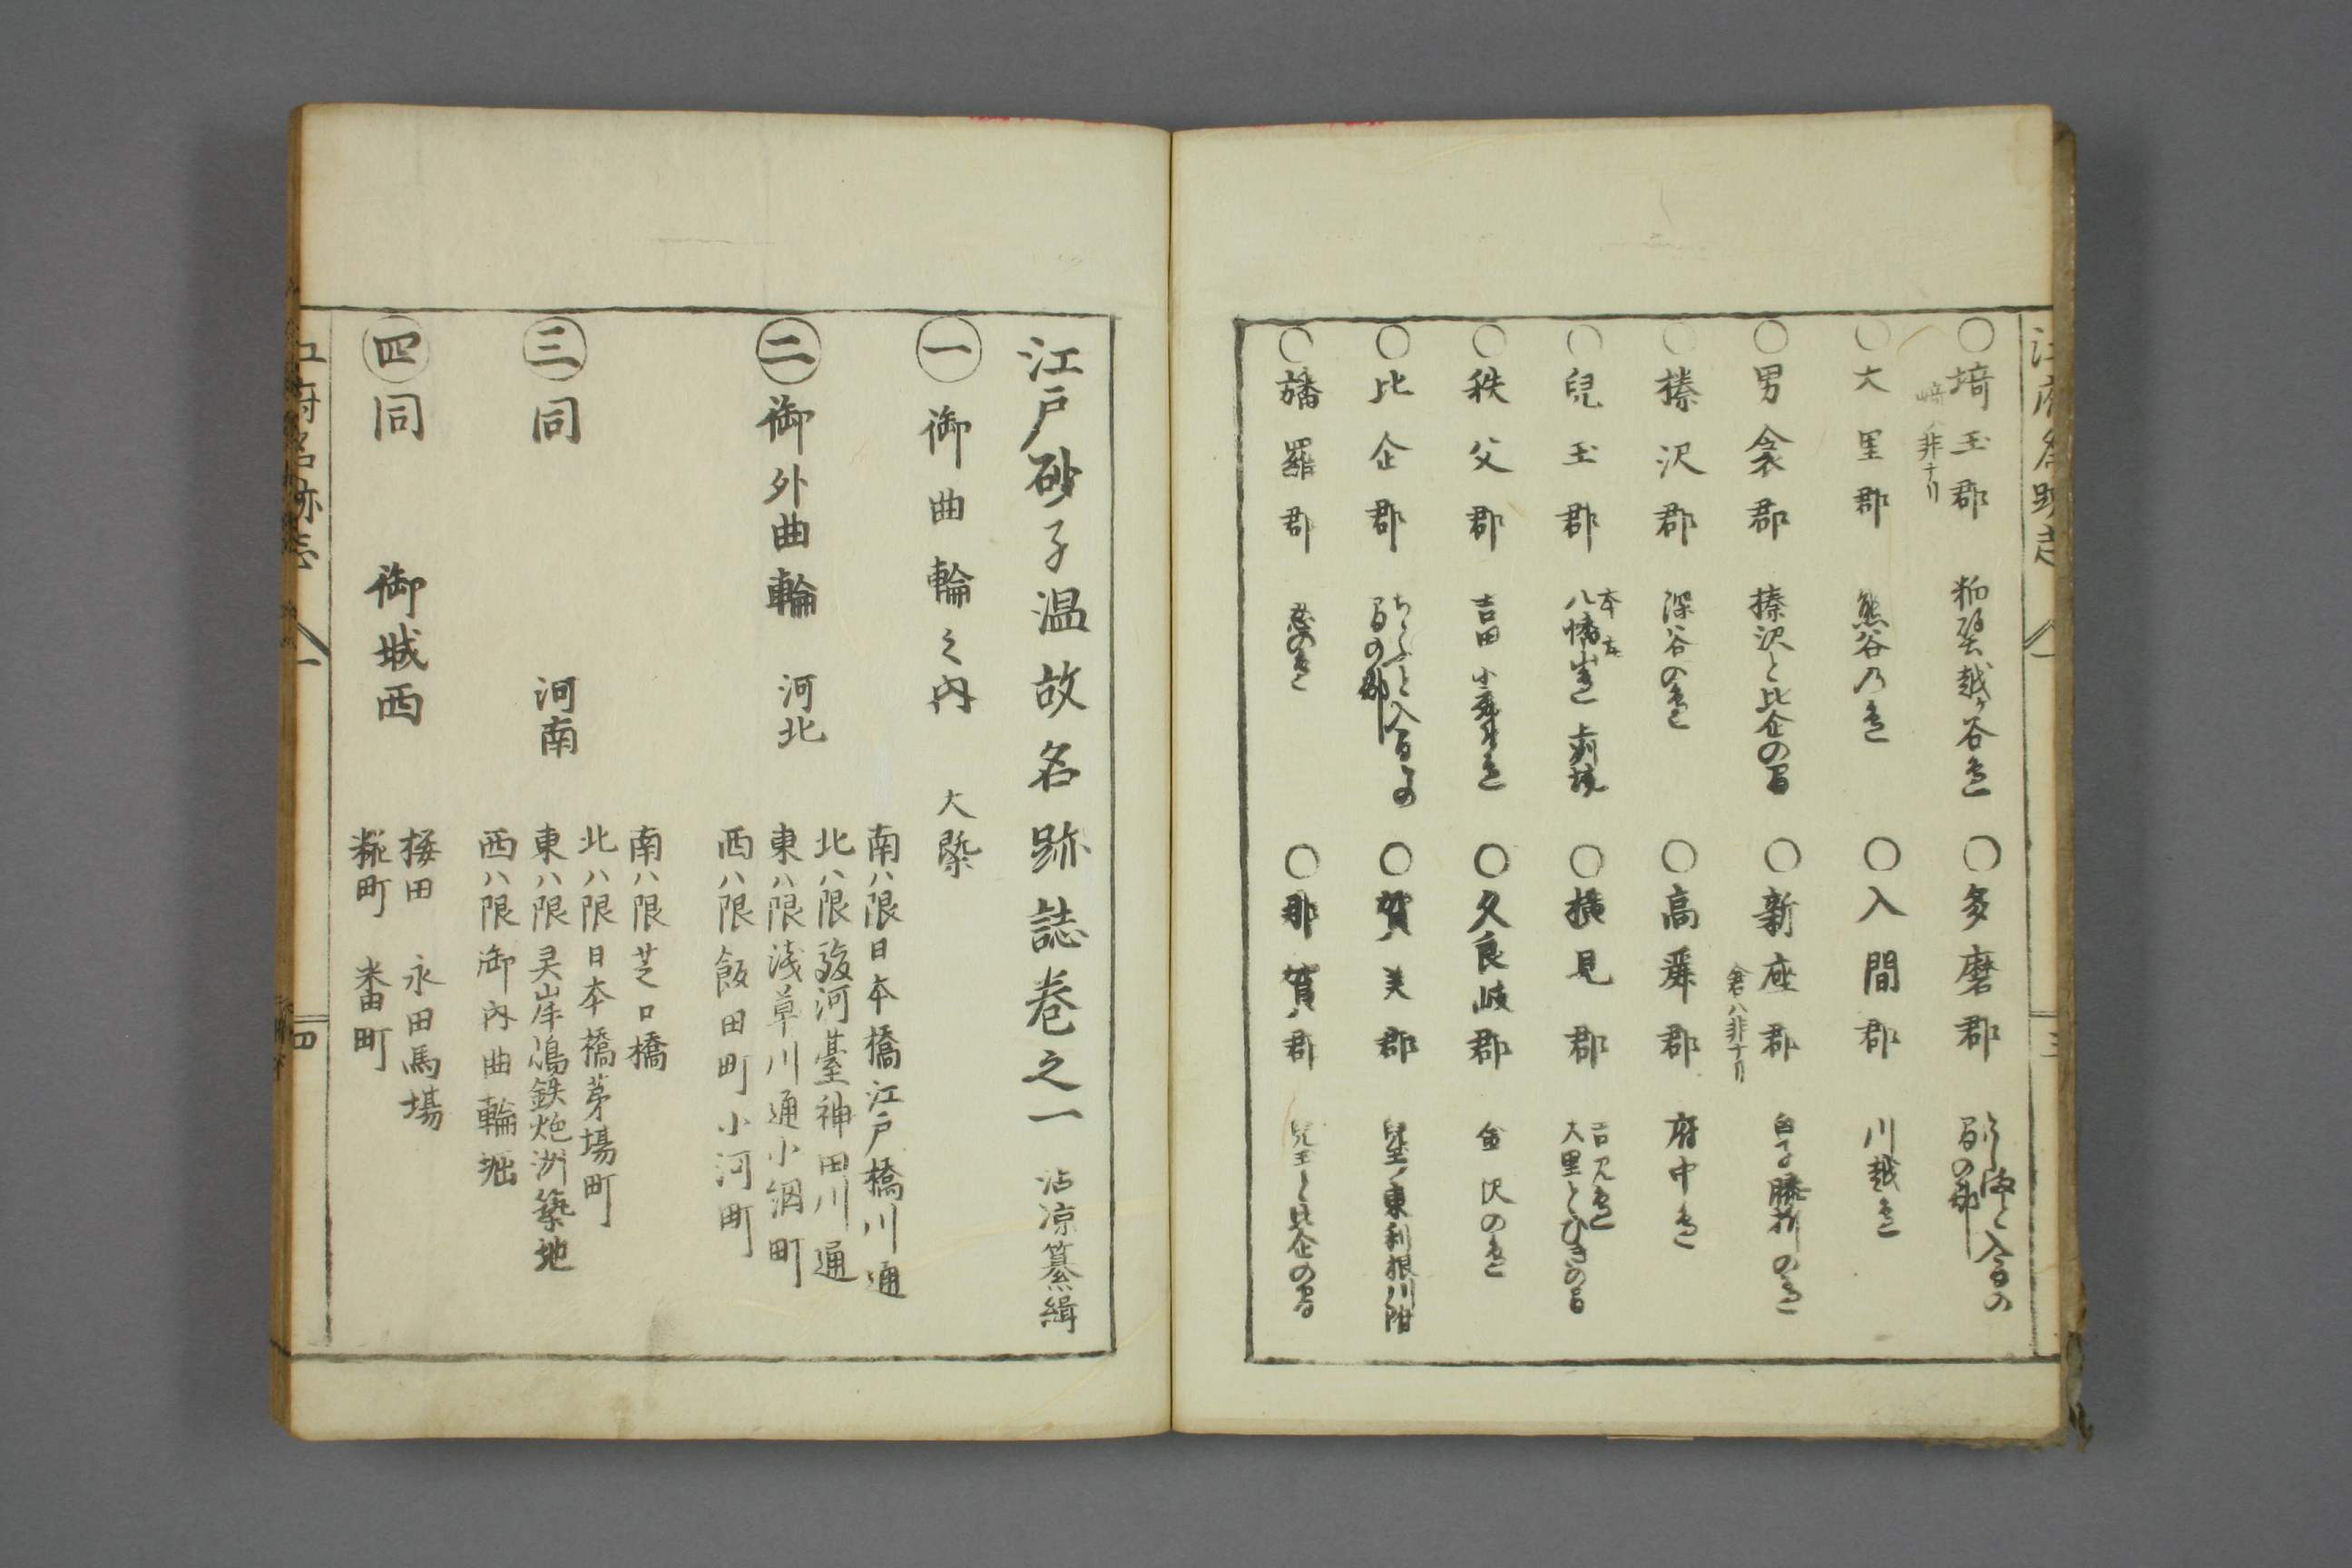 ○埼玉郡 粕壁越ヶ谷邊
○多磨郡
崎ハ非ナリ
○大里郡 熊谷乃邊
○入間郡 川越邊
○男衾郡 榛沢と比企の間
○新座郡 白子膝折の邊
倉ハ非ナリ
○榛沢郡 深谷の邊
○高麗郡 府中邊
○兒玉郡 本庄
八幡山邊 上刕境
○横見郡 吉見邊
大里とひきの間
○秩父郡 吉田
○久良岐郡 金沢の邊
○比企郡 ちゝぶと入間との
間の郡
○賀美郡 兒玉ノ東利根川附
○幡羅郡 忍の邊
○那賀郡 兒玉と比企の間
江戸砂子温故名跡誌巻之一 沾凉纂緝
㊀御曲輪之内 大槩
㊁御外曲輪 河北
南ハ限日本橋江戸橋川通
北ハ限駿河臺神田川通
東ハ限淺草川通小網町
西ハ限飯田町小河町
㊂同 河南
南ハ限芝口橋
北ハ限日本橋茅場町
東ハ限灵岸嶋鉄炮洲築地
西ハ限御内曲輪堀
㊃同 御城西
桜田 永田馬場
糀町 番町
江府名跡志 一 四